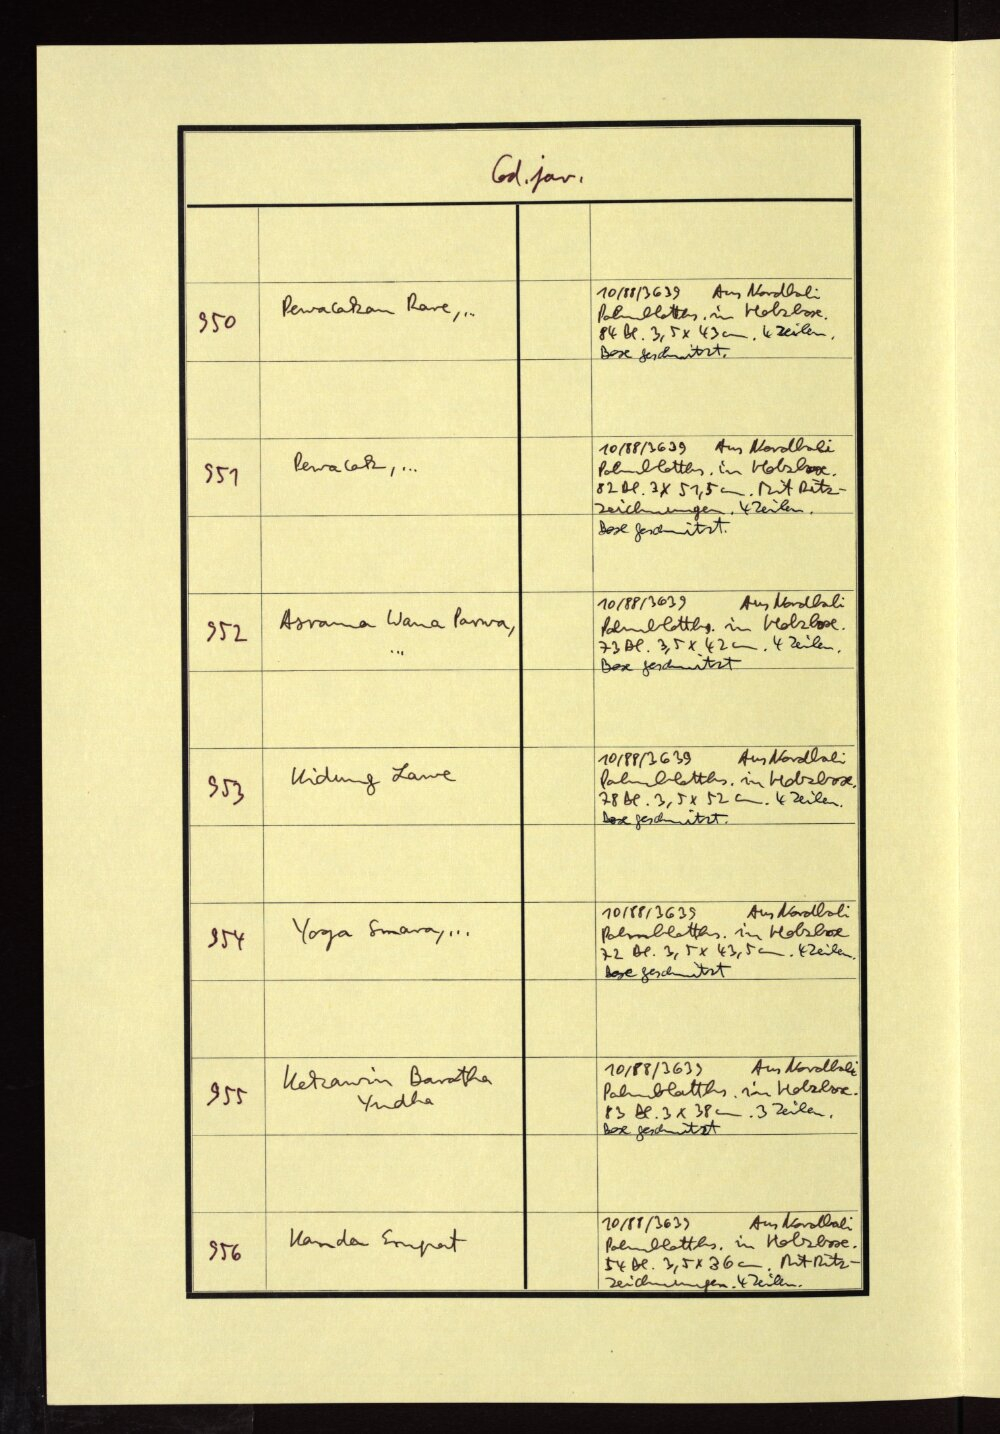 Cod. jav.
950
Pewacakan Rare, ...
10/88/3639 Aus Nordbali
Palmblatths. in Holzbox.
84 Bl. 3,5 x 43 cm. 4 Zeilen.
Box geschnitzt.
951
Pewacak, ...
10/88/3639 Aus Nordbali
Palmblatths. in Holzbox.
82 Bl. 3 x 51,5 cm. Mit Ritz-
zeichnungen. 4 Zeilen.
Box geschnitzt.
952
Asrama Wana Parwa,
...
10/88/3639 Aus Nordbali
Palmblatths. in Holzbox.
73 Bl. 3,5 x 42 cm. 4 Zeilen.
Box geschnitzt
953
Kidung Lawe
10/88/3639 Aus Nordbali
Palmblatths. in Holzbox.
78 Bl. 3,5 x 52 cm. 4 Zeilen.
Box geschnitzt.
954
Yoga Smara, ...
10/88/3639 Aus Nordbali
Palmblatths. in Holzbox
72 Bl. 3,5 x 43,5 cm. 4 Zeilen.
Box geschnitzt
955
Kekawin Baratha
Yudha
10/88/3639 Aus Nordbali
Palmblatths. in Holzbox.
83 Bl. 3 x 38 cm. 3 Zeilen.
Box geschnitzt
956
Kanda Empat
10/88/3639 Aus Nordbali
Palmblatths. in Holzbox.
54 Bl. 3,5 x 36 cm. Mit Ritz-
zeichnungen. 4 Zeilen.